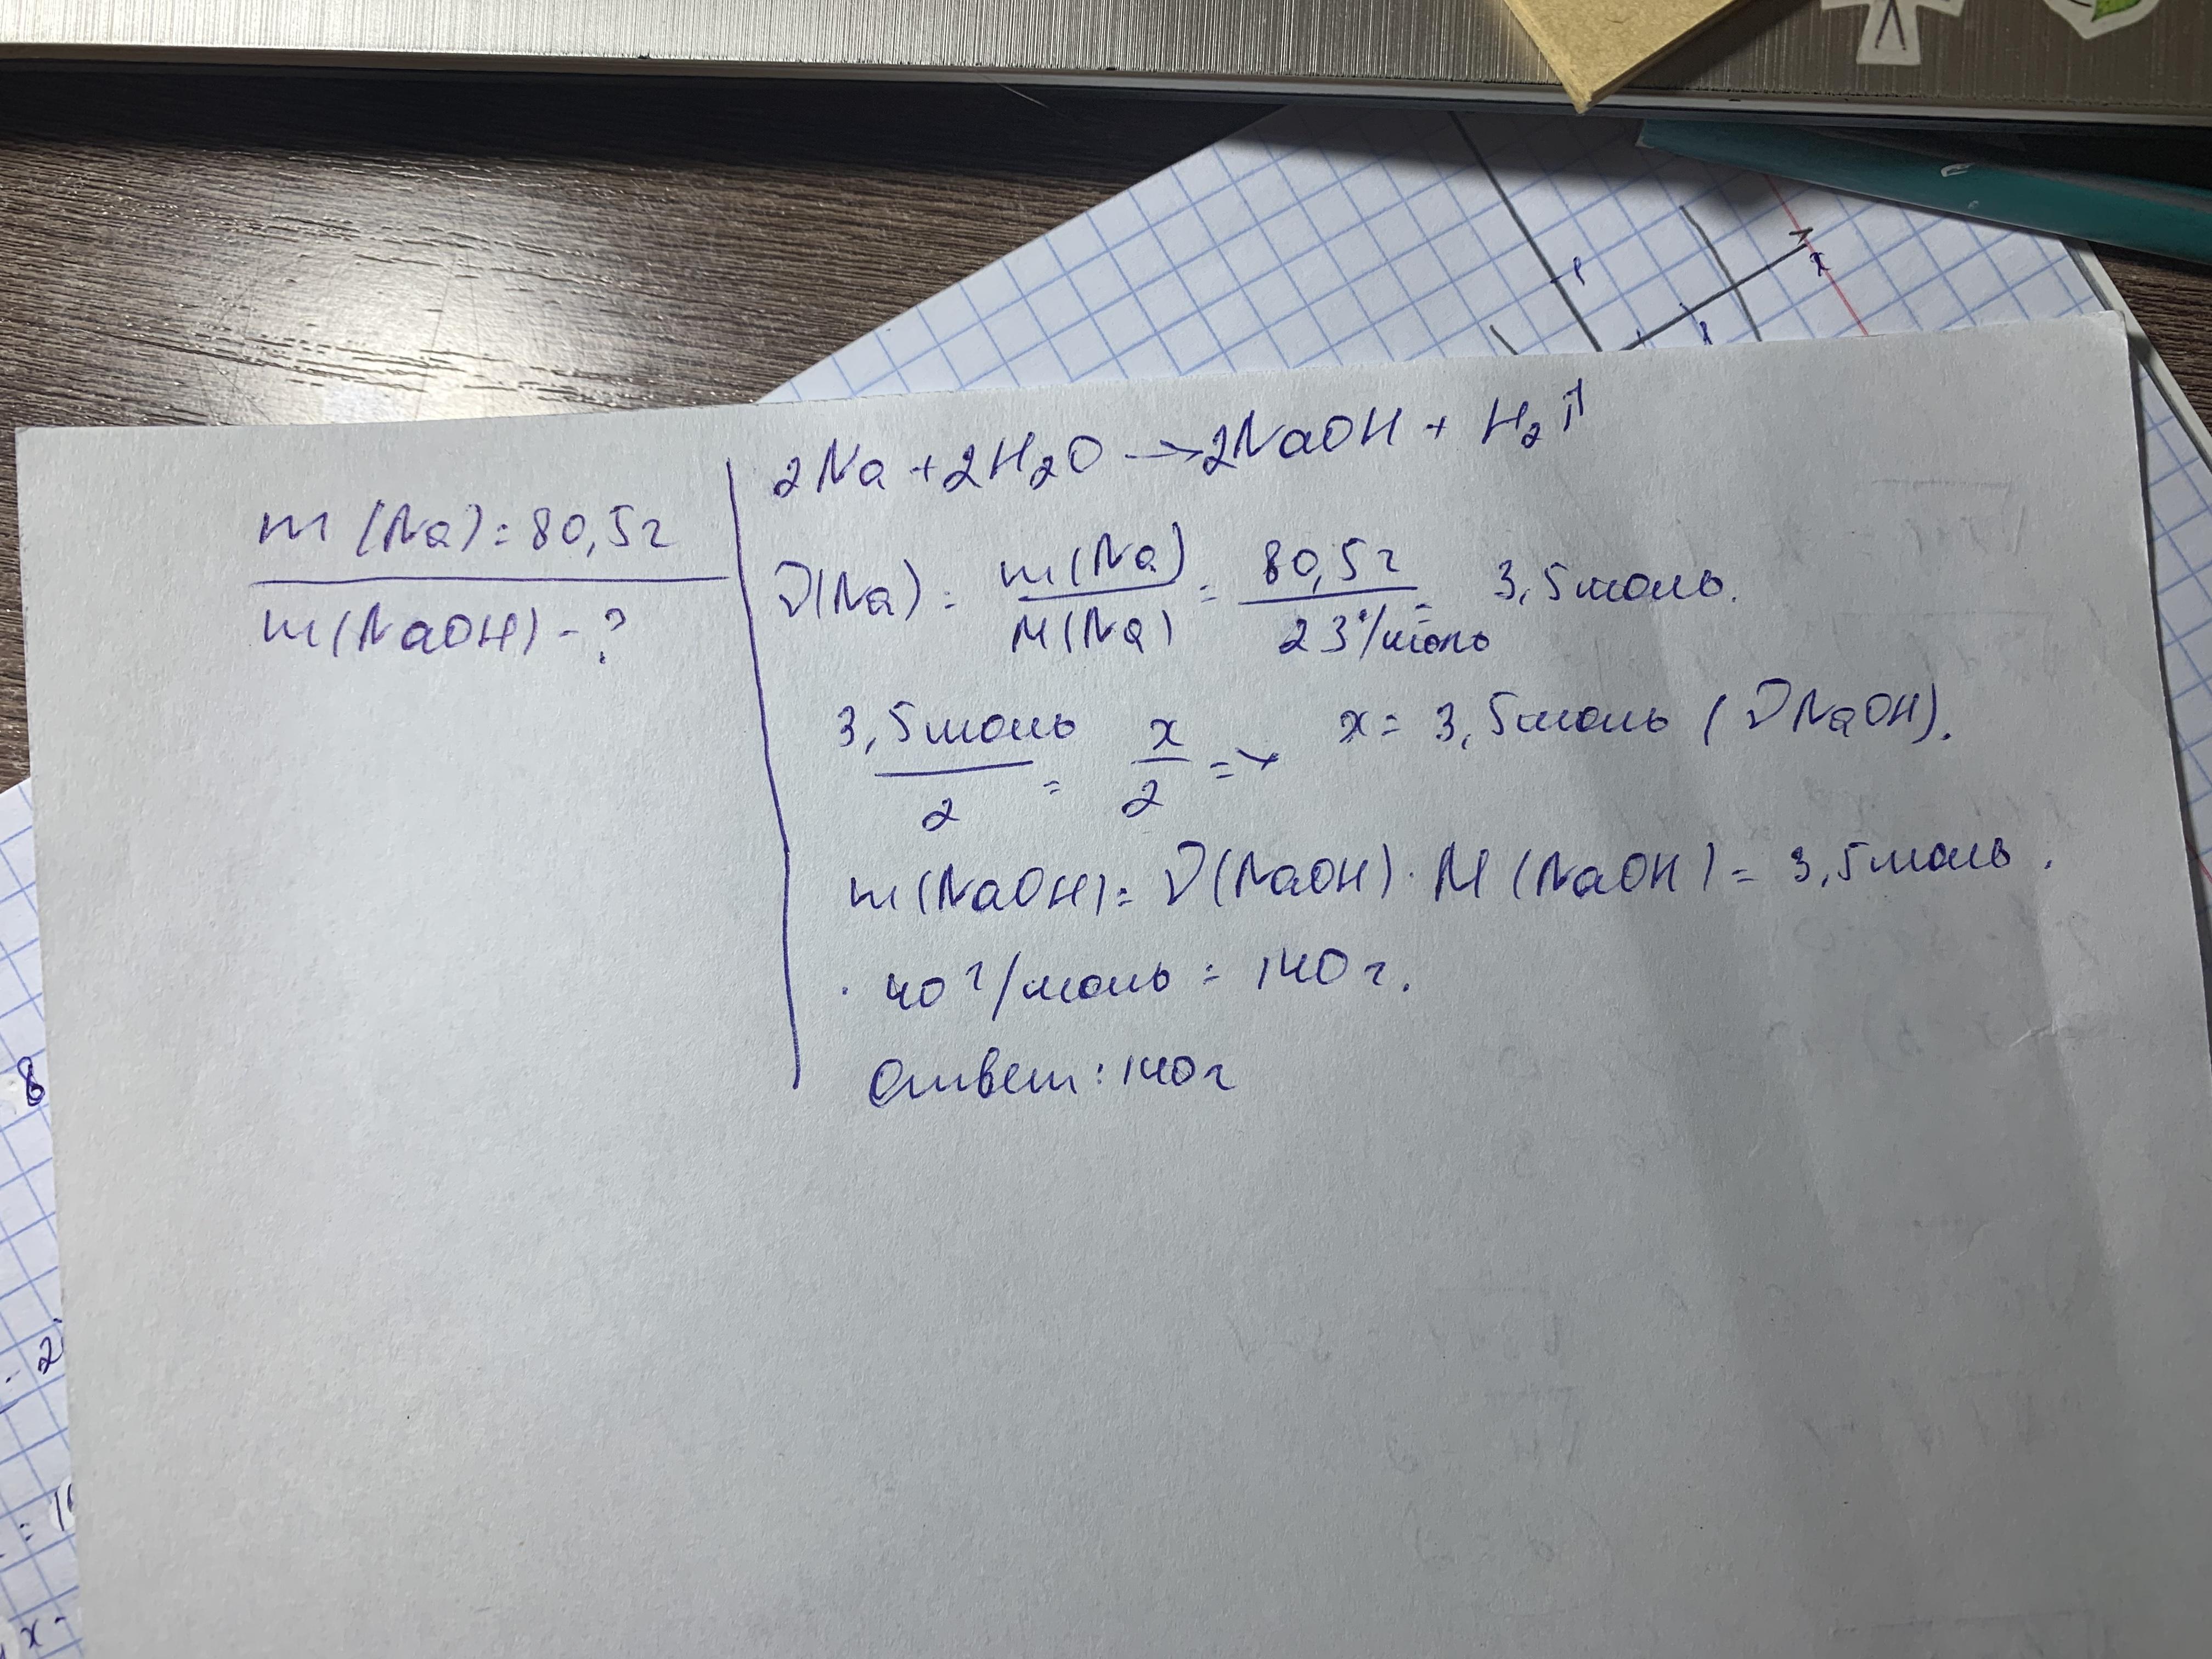 m(Na)=80,5г
m(NaOH)-?
2Na+2H₂O→2NaOH+H₂↑
ν(Na)=m(Na)/M(Na)=80,5г/23г/моль=3,5моль.
3,5моль/2=x/2=> x=3,5моль(νNaOH).
m(NaOH)=ν(NaOH)·M(NaOH)=3,5моль·
·40г/моль=140г.
Ответ:140г
8
x